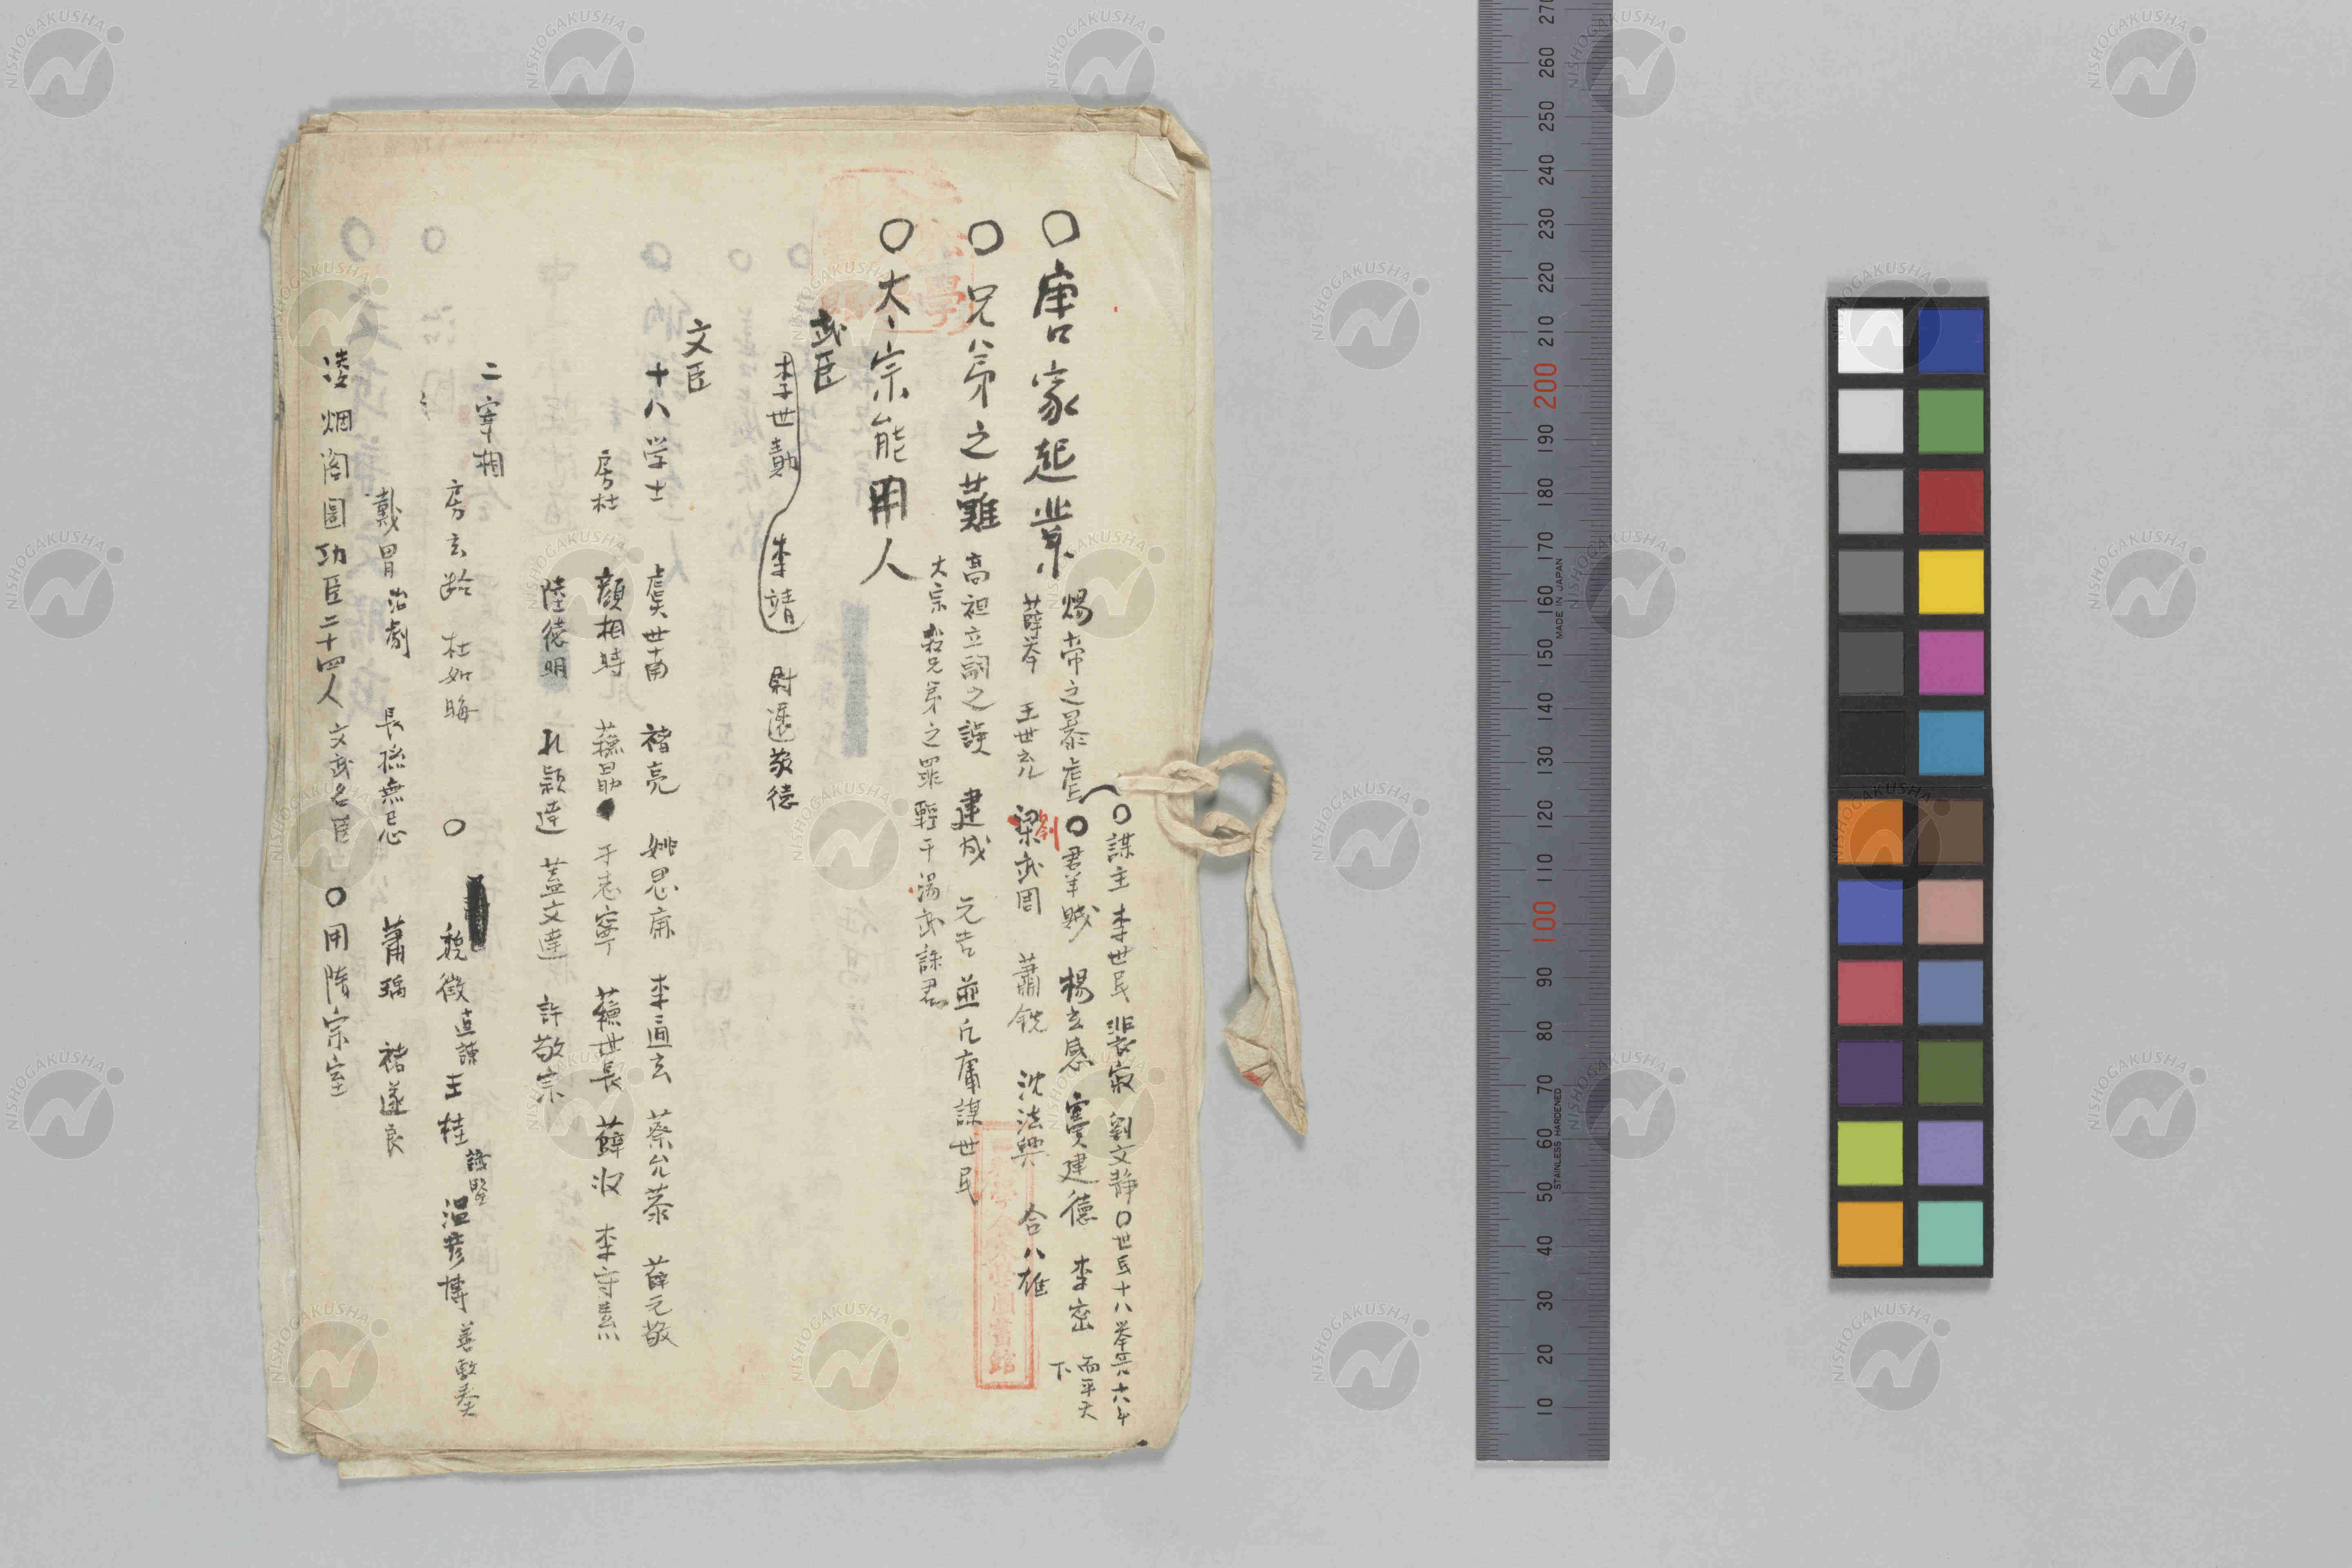 ○謀主 李世民 裴寂 劉文靜 ○世民十八挙兵六年
○唐家起業 煬帝之暴虐 ○君羊賊 楊玄感 竇建德 李密 而平天下
薛挙 王世充 梁武周 蕭銑 沈法興 合八雄
劉
○兄八弟之難 高祖立嗣之誤 建成 元吉 並凡庸謀世民
太宗殺兄弟之罪軽于湯武誅君
○太宗能用人
武臣
李世勣 李靖 尉遲敬徳
文臣
十八学士 虞世南 褚亮 姚思廉 李道玄 蔡允恭 薛元敬
房杜 顔相時 蘇勗 于志寧 蘇世長 薛収 李守素
陸徳明 孔穎達 蓋文達 許敬宗
二宰相
房玄齢 杜如晦 ○ 魏徴 直諫 王珪 温彦博 善敷奏
戴胄 治劇 長孫無忌 蕭瑀 褚遂良
凌烟閣圖功臣二十四人 文武名臣 ○用隋宗室
NISHOGAKUSHA
270
260
250
240
230
220
210
200
190
180
170
160
150
140
130
120
110
100
90
80
70
60
50
40
30
20
10
MADE IN JAPAN
STAINLESS HARDENED